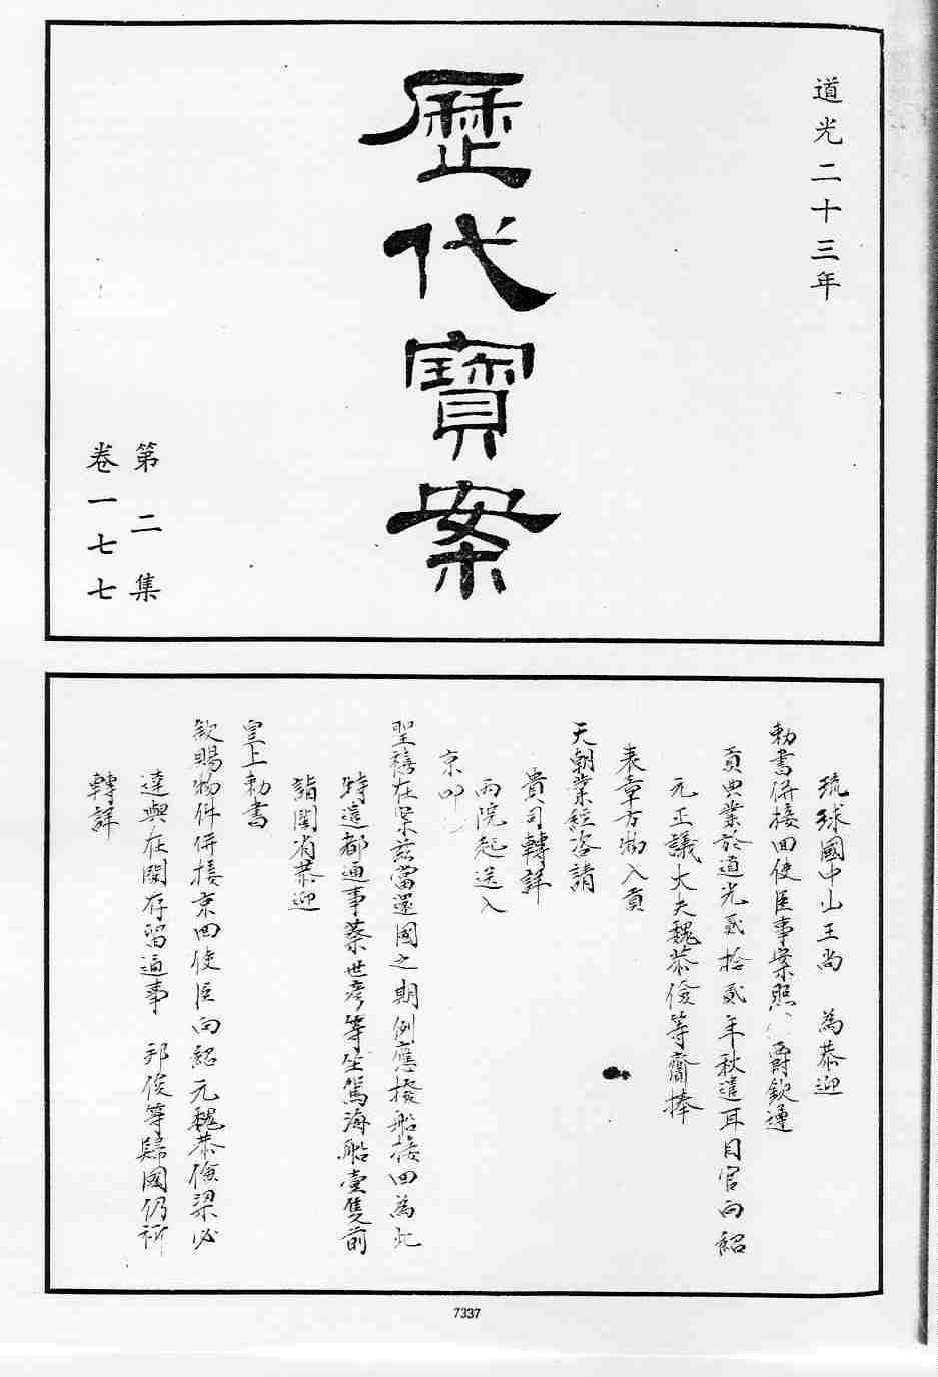 道光二十三年
歷代寶案
第二集
卷一七七
琉球國中山王尚 為恭迎
勅書併接回使臣事案照 爵欽遵
貢典業於道光貳拾貳年秋遣耳目官向紹
元正議大夫魏恭儉等齎捧
表章方物入貢
天朝業經咨請
貴司轉詳
両院起送入
京叩
聖禧在案茲當還國之期例應撥船接回為此
特遣都通事蔡世彦等坐駕海船壹隻前
詣閩省恭迎
皇上勅書
欽賜物件併接京回使臣向紹元魏恭儉梁必
達與在閩存留通事 邦俊等歸國仍祈
轉詳
7337